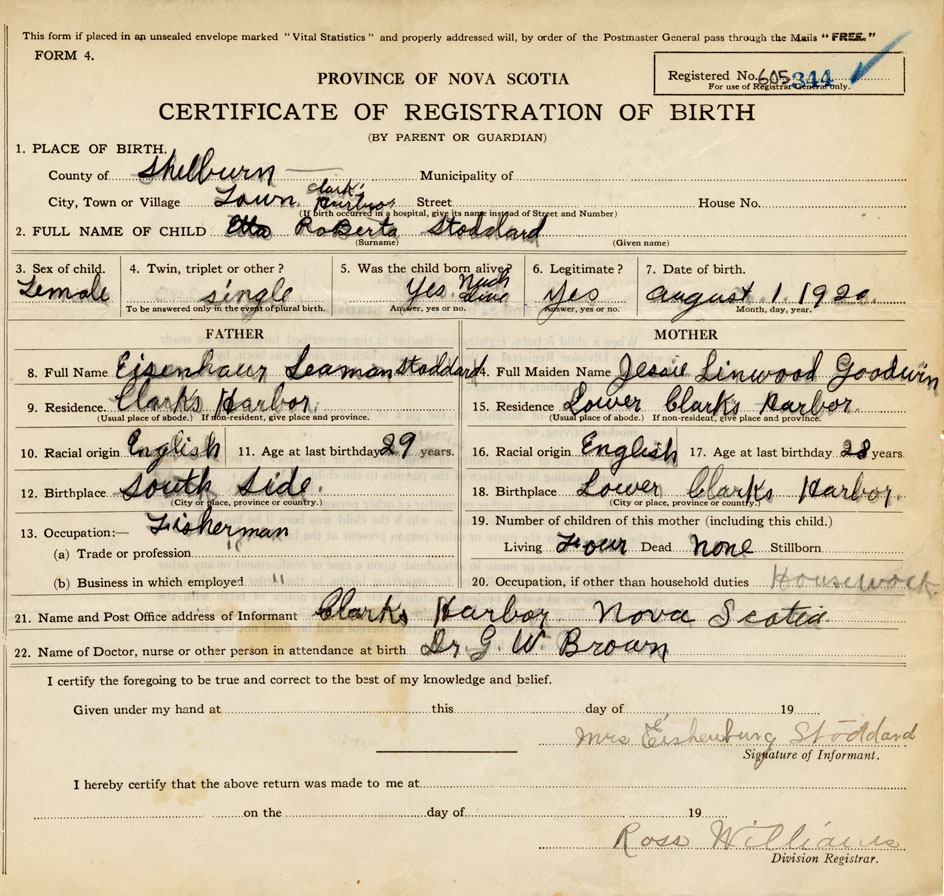 This form if placed in an unsealed envelope marked "Vital Statistics" and properly addressed will, by order of the Postmaster General pass through the Mails "FREE."
FORM 4.
PROVINCE OF NOVA SCOTIA
Registered No. 605 344
For use of Registrar General only.
CERTIFICATE OF REGISTRATION OF BIRTH
(BY PARENT OR GUARDIAN)
1. PLACE OF BIRTH.
County of Shelburn Municipality of
City, Town or Village Town Clark's Harbor Street House No.
(If birth occurred in a hospital, give its name instead of Street and Number)
2. FULL NAME OF CHILD Etta Roberta Stoddard
(Surname) (Given name)
3. Sex of child. 4. Twin, triplet or other? 5. Was the child born alive? 6. Legitimate? 7. Date of birth.
Female single Yes Yes August 1. 1920.
To be answered only in the event of plural birth. Answer, yes or no. Answer, yes or no. Month, day, year.
FATHER MOTHER
8. Full Name Eisenhaur Seaman Stoddard 14. Full Maiden Name Jessie Linwood Goodwin
9. Residence. Clarks Harbor. 15. Residence Lower Clarks Harbor.
(Usual place of abode.) If non-resident, give place and province. (Usual place of abode.) If non-resident, give place and province.
10. Racial origin English 11. Age at last birthday 29 years. 16. Racial origin English 17. Age at last birthday 28 years.
12. Birthplace South Side. 18. Birthplace Lower Clarks Harbor.
(City or place, province or country.) (City or place, province or country.)
13. Occupation:— Fisherman 19. Number of children of this mother (including this child.)
(a) Trade or profession Living Four Dead None Stillborn
(b) Business in which employed " 20. Occupation, if other than household duties Housework.
21. Name and Post Office address of Informant Clarks Harbor Nova Scotia
22. Name of Doctor, nurse or other person in attendance at birth Dr. G. W. Brown
I certify the foregoing to be true and correct to the best of my knowledge and belief.
Given under my hand at this day of 19
Mrs Eishenburg Stoddard
Signature of Informant.
I hereby certify that the above return was made to me at
on the day of 19
Ross Williams
Division Registrar.